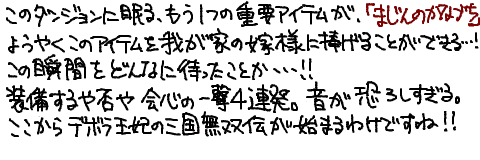 このダンジョンに眠る、もう1つの重要アイテムが、「まじんのかなづち」
ようやくこのアイテムを我が家の嫁様に捧げることができる…!
この瞬間をどんなに待ったことか…!!
装備するや否や会心の一撃4連発。音が恐ろしすぎる。
ここからデボラ王妃の三国無双伝が始まるわけですね!!